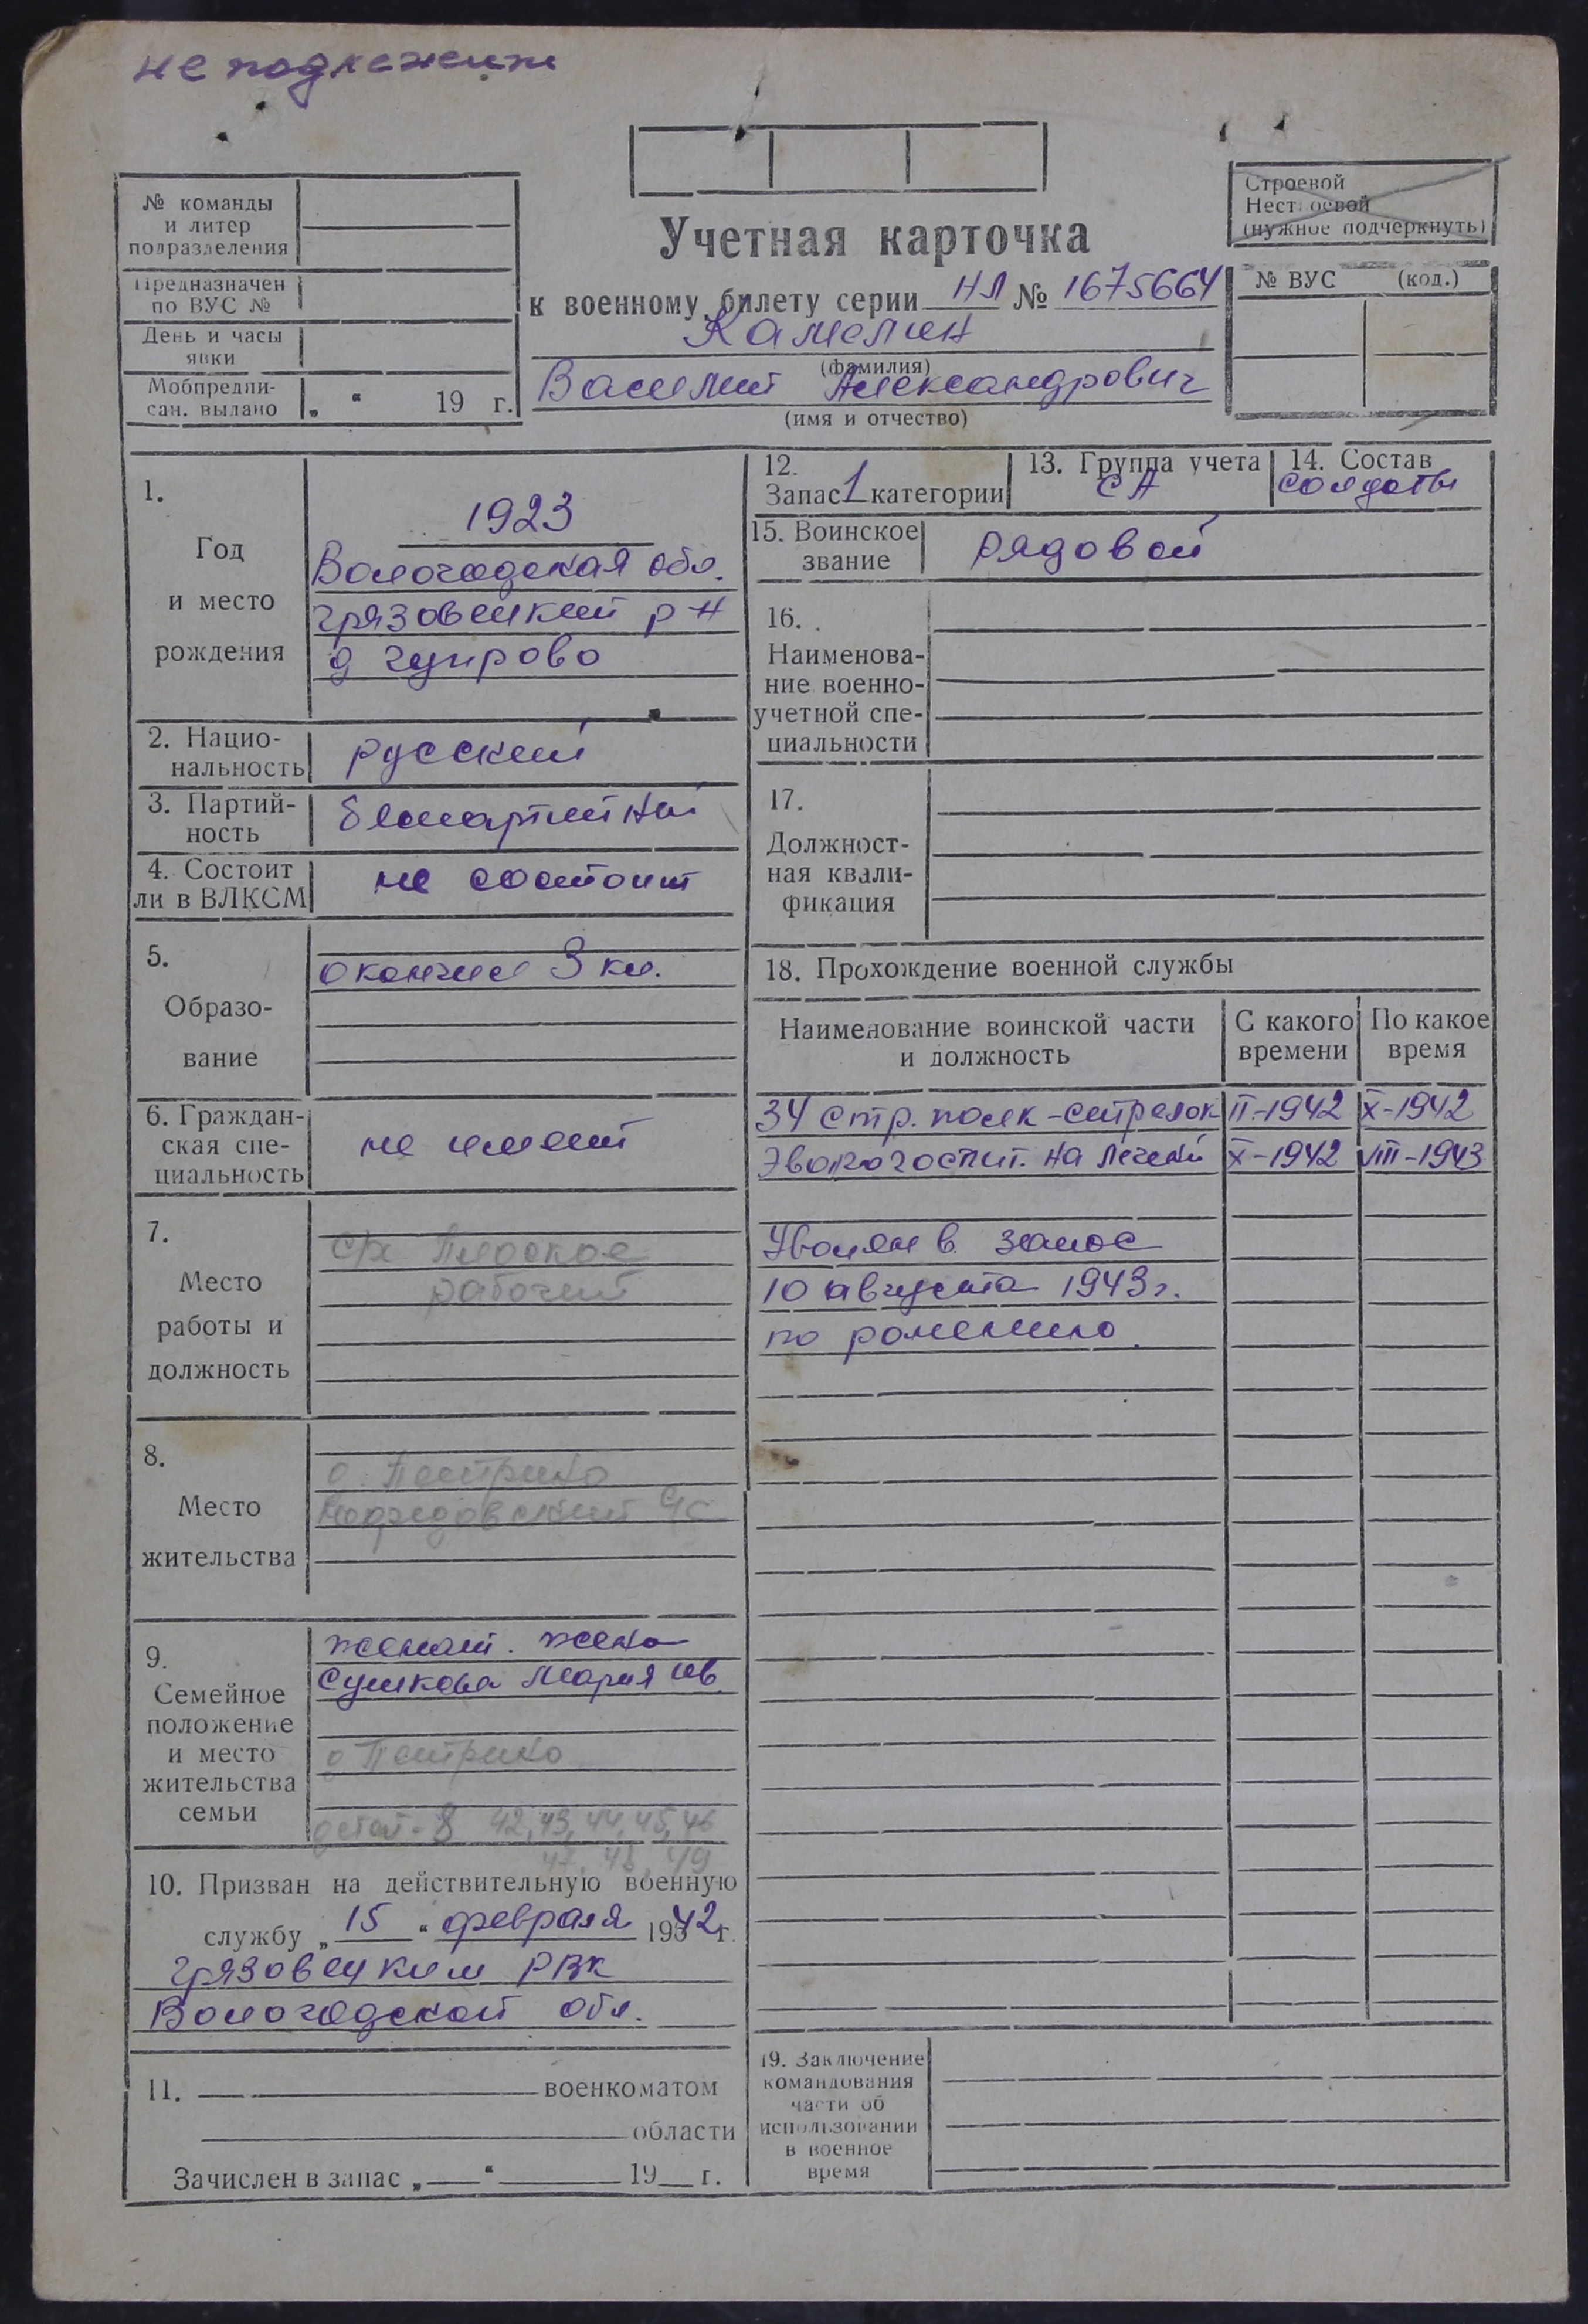 не подлежит
№ команды
и литер
подразделения
Предназначен
по ВУС №
День и часы
явки
Мобпредпи-
сан. выдано „ “ 19 г.
Учетная карточка
к военному билету серии НЛ № 1675664
Камелин
(фамилия)
Василий Александрович
(имя и отчество)
Строевой
Нестроевой
(нужное подчеркнуть)
№ ВУС (код.)
1.
Год
и место
рождения
1923
Вологодская обл.
Грязовецкий р-н
д Чупрово
2. Нацио-
нальность
русский
3. Партий-
ность
беспартийный
4. Состоит
ли в ВЛКСМ
не состоит
5.
Образо-
вание
окончил 3 кл.
6. Граждан-
ская спе-
циальность
не имеет
7.
Место
работы и
должность
с/х Плоское
рабочий
8.
Место
жительства
д. Пестрико
с/с
9.
Семейное
положение
и место
жительства
семьи
женат. жена
Сушкова Мария Ив.
д Пестрико
детей - 8 42, 43, 44, 45, 46
47, 48, 49
10. Призван на действительную военную
службу „ 15 “ февраля 1942 г.
Грязовецким РВК
Вологодской обл.
11. военкоматом
области
Зачислен в запас „ “ 19 г.
12.
Запас 1 категории
13. Группа учета
СА
14. Состав
солдаты
15. Воинское
звание
рядовой
16.
Наименова-
ние военно-
учетной спе-
циальности
17.
Должност-
ная квали-
фикация
18. Прохождение военной службы
Наименование воинской части
и должность
С какого
времени
По какое
время
34 стр. полк - стрелок II-1942 X-1942
Эвакогоспит. на лечении X-1942 VIII-1943
Уволен в запас
10 августа 1943 г.
по ранению
19. Заключение
командования
части об
использовании
в военное
время